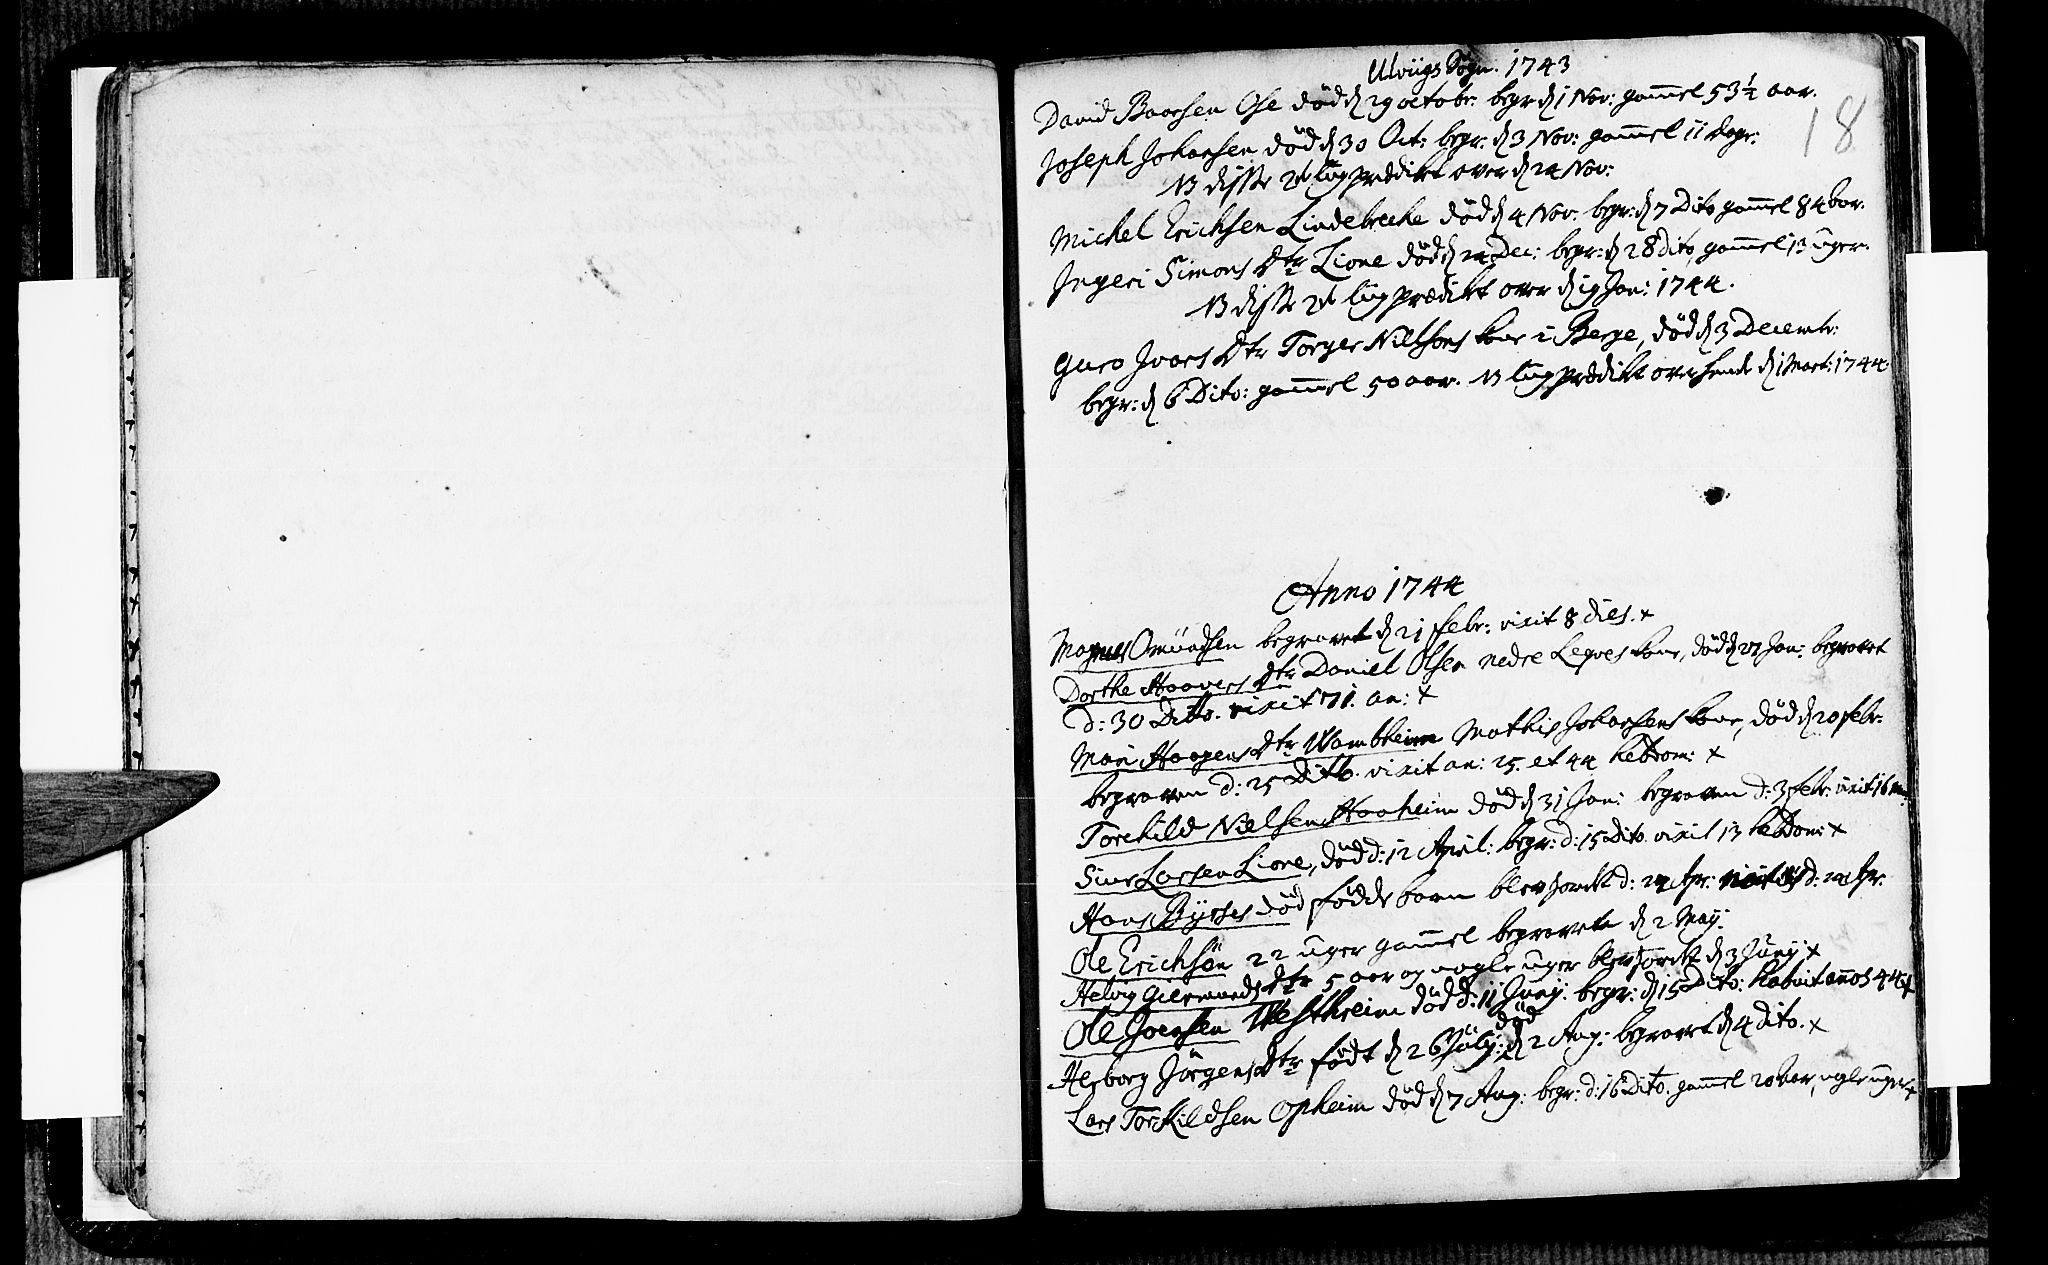 Ulviigs Sogn. 1743
18
David Baarsen Ose død d 29 octobr: begr: d 1 Nov: gam̄el 53 1/2 aar.
Joseph Johansen død d 30 Oct: begr: d 3 Nov: gam̄el 11 dage:
disse 2de liigprædiket over d 24 Nov:
Michel Erichsen Lindebrecke død d 4 Nov: begr: d 7 Dito gam̄el 84 aar.
Ingeri Simons dtr Lione død d 24 Dec: begr: d 28 dito, gam̄el 13 uger.
disse 2de liigprædiket over d 19 Jan: 1744.
Guro Ivars dtr Torger Nielsons kone i Berge, død d 3 Decembr:
begr: d 6 Dito: gam̄el 50 aar. liigprædiket over hende d 1 Mart: 1744.
Anno 1744
Magnus Omundsen begravet d 21 Febr: vixit 8 dies. x
Dorthe Haavers dtr Daniel Olsen nedre Legves kone, død d 27 Jan: begravet
d: 30 Ditto. vixit 71. an: x
Mari Haagens dtr Wambheim Mathis Johansens kone, død d 20 febr:
begraven d: 25 Ditto. vixit an: 25. et 44 hebdom: x
Torchild Nielsen Haaheim død d 31 Jan: begraven d: 3 febr: vixit 16
Siur Larsen Lione, død d: 12 April: begr: d: 15 Dito. vixit 13 hebdom: x
Hans Bysses død fødde barn blev jordet d: 24 Apr:
Ole Erichsön 22 uger gammel begravet d 2 Maij:
Helvig Giermunds dtr 5 aar og nogle uger blev jordet d 3 Junij: x
Ole Joensen Westhreim død d: 11 Junij: begr: d 15 Dito: habuit annos 44 x
død
Herborg Jörgens dtr født d 26 Julij: d 2 Aug: begravet d 4 dito. x
Lars Torkildsen Opheim død d 7 Aug: begr: d: 16 Dito. gammel 20 aar, nogle uger x